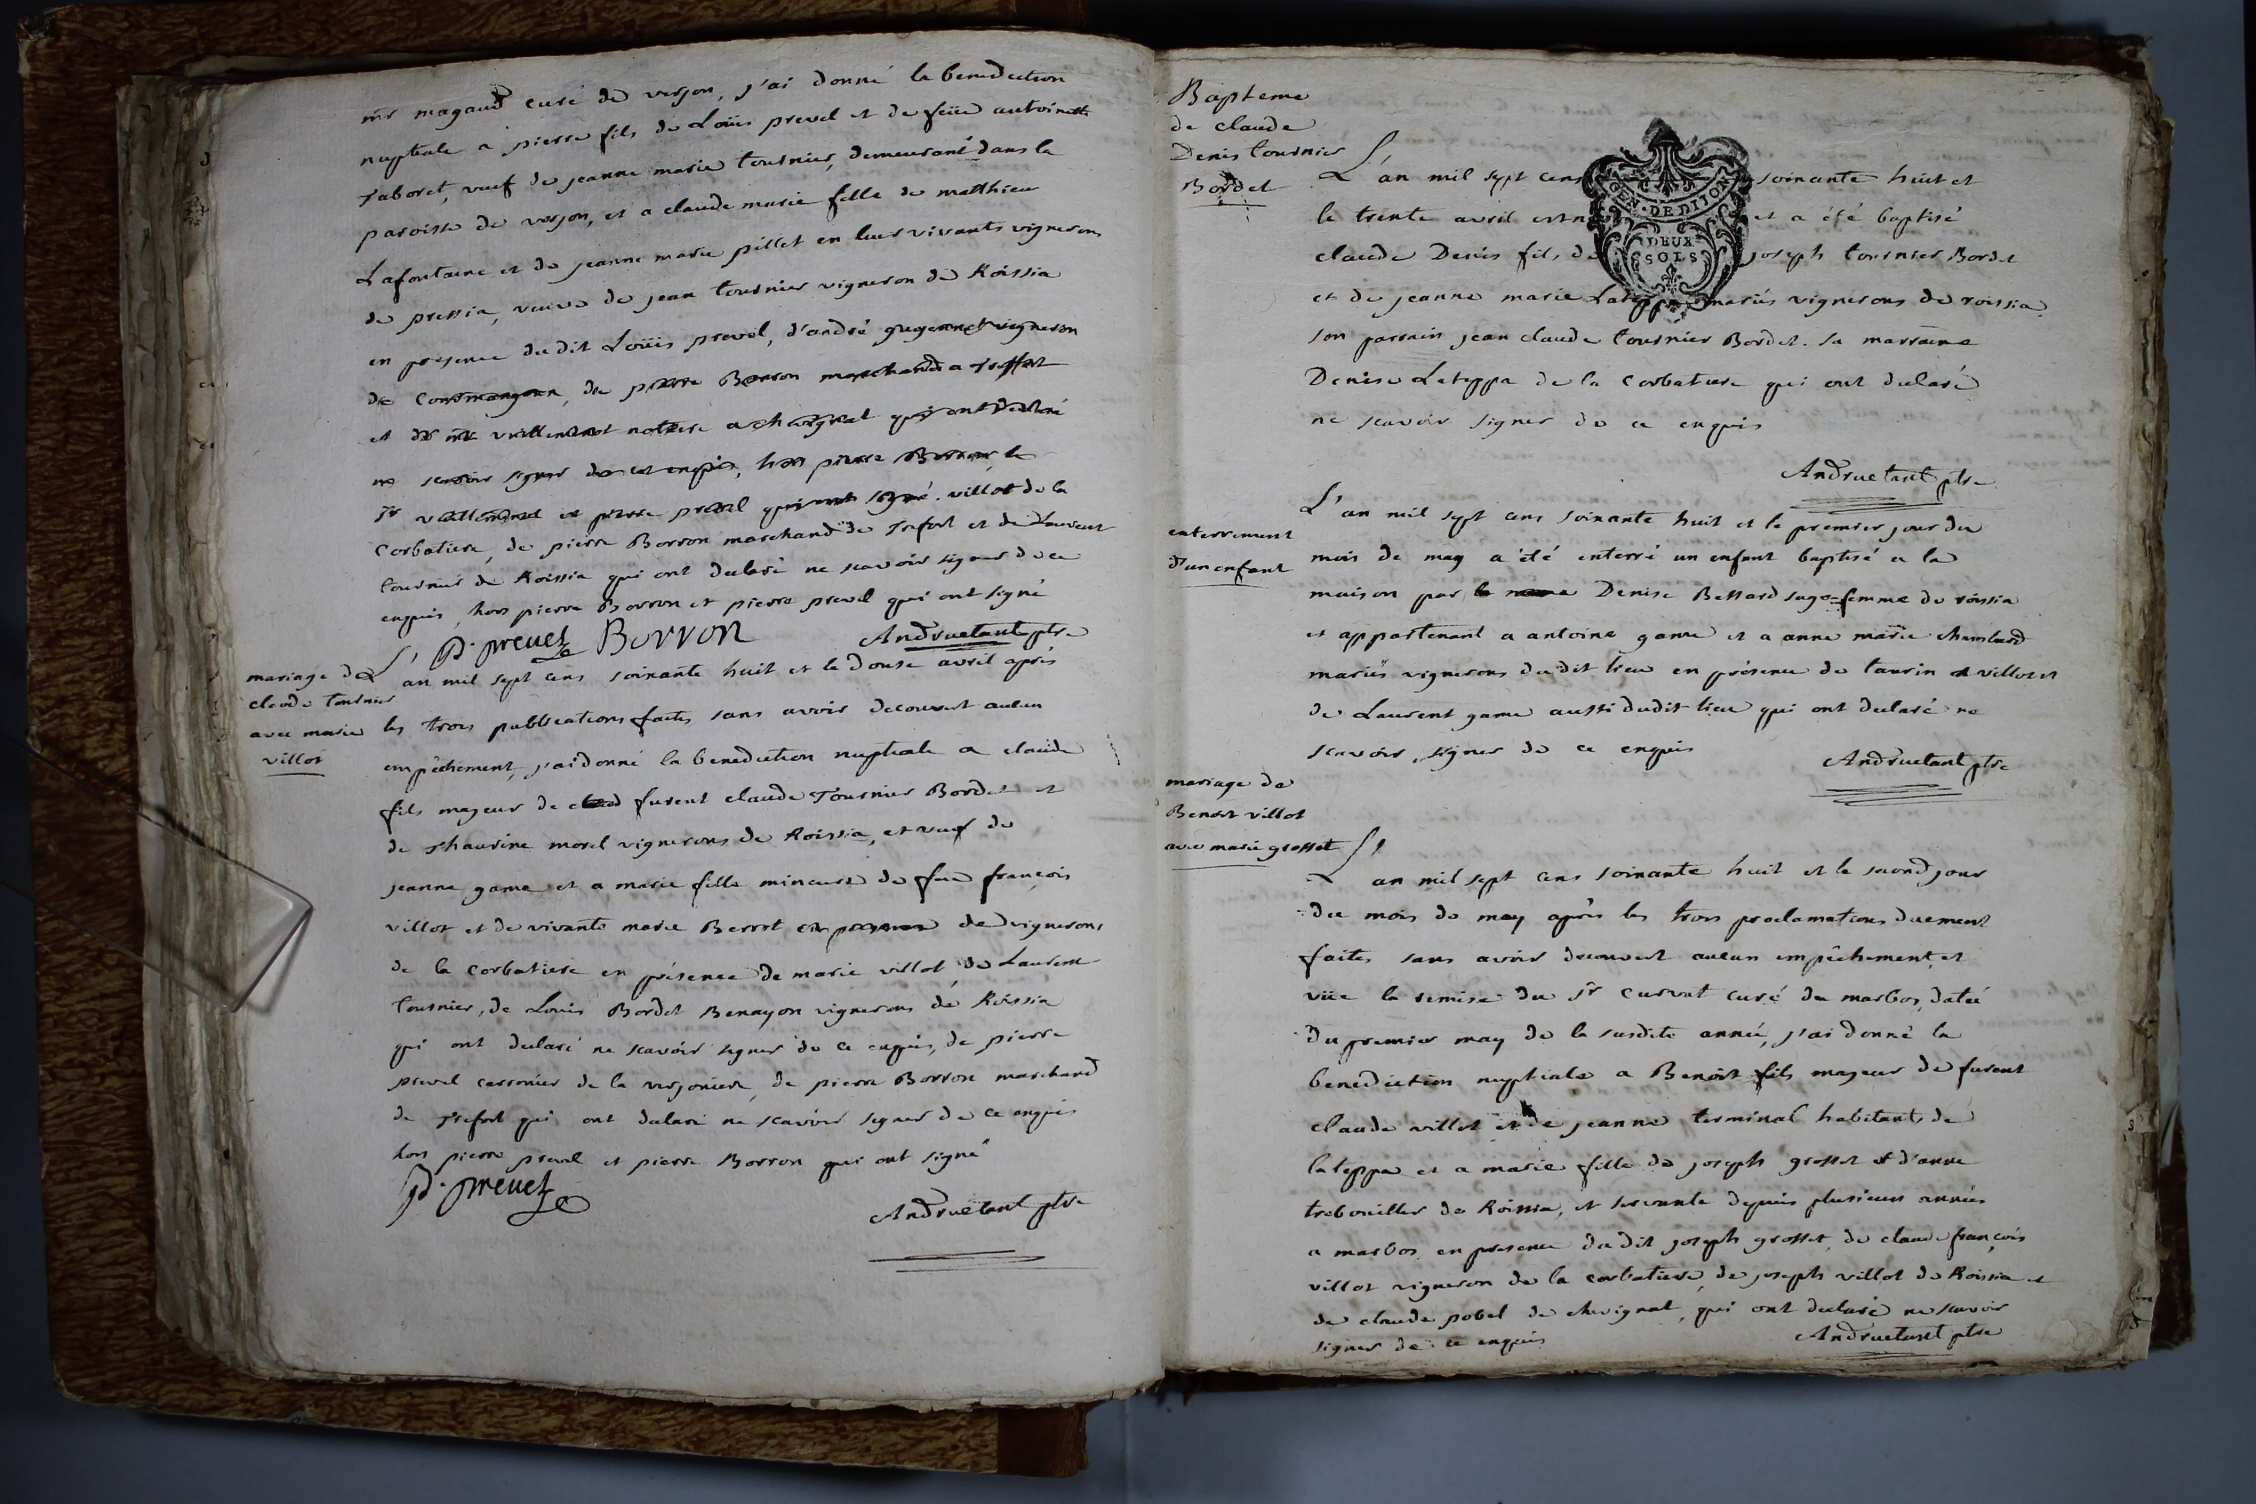 mr magaud curé de verjon, j'ai donné la benediction
nuptiale a pierre fils de Loüis prevel et de feüe antoinette
Taboret, veuf de jeanne marie tournier, demeurant dans la
paroisse de verjon, et a claude marie fille de matthieu
Lafontaine et de jeanne marie pillet en leur vivants vignerons
de pressia, veuve de jean tournier vigneron de Roissia
en presence dudit Loüis prevel, d'andré vigneron
de de pierre Borron marchand a Treffort
et de mr notaire a qui ont declaré
ne scavoir signer de ce enquis, hors pierre Borron, le
sr et pierre prevel qui ont signé. villot de la
Corbatiere, de pierre Borron marchand de Trefort et de Laurent
tournier de Roissia qui ont declaré ne scavoir signer de ce
enquis, hors pierre Borron et pierre prevel qui ont signé
p. prevel Borron Andruetant ptre
mariage de
claude tournier
avec marie
villot
L'an mil sept cens soixante huit et le douse avril après
les trois publications faites sans avoir decouvert aucun
empêchement, j'ai donné la benediction nuptiale a claude
fils majeur de furent claude Tournier Bordet et
de Thaurine morel vignerons de Roissia, et veuf de
jeanne game et a marie fille mineure de feu françois
villot et de vivante marie Berrot de vignerons
de la corbatiere en présence de marie villot de Laurent
tournier, de Louis Bordet Benayon vignerons de Roissia
qui ont declaré ne scavoir signer de ce enquis, de pierre
prevel de la verjoniere, de pierre Borron marchand
de Trefort qui ont declaré ne scavoir signer de ce enquis
hors pierre prevel et pierre Borron qui ont signé
p. prevel
Andruetant ptre
Bapteme
de claude
Denis tournier
Bordet
GEN. DE DIJON
DEUX
SOLS
L'an mil sept cens soixante huit et
le trente avril est né et a été baptisé
claude Denis fils de joseph tournier Bordet
et de jeanne marie Lateppa mariés vignerons de roissia
son parrain jean claude tournier Bordet. sa marraine
Denise Lateppa de la Corbatiere qui ont declaré
ne scavoir signer de ce enquis
Andruetant ptre
enterrement
d'un enfant
L'an mil sept cens soixante huit et le premier jour du
mois de may a été enterré un enfant baptisé a la
maison par Denise Bessard sage-femme de roissia
et appartenant a antoine game et a anne marie chambard
mariés vignerons dudit lieu en présence de taurin villot et
de Laurent game aussi dudit lieu qui ont declaré ne
scavoir signer de ce enquis
Andruetant ptre
mariage de
Benoit villot
avec marie grosset
L'an mil sept cens soixante huit et le second jour
du mois de may après les trois proclamations duement
faites sans avoir decouvert aucun empêchement, et
vüe la remise du sr curvat curé de marbos, datée
du premier may de la susdite année, j'ai donné la
benediction nuptiale a Benoit fils majeur de furent
claude villot et de jeanne terminal habitants de
lateppa et a marie fille de joseph grosset et d'anne
trebouillet de Roissia, et servante depuis plusieurs années
a marbos en presence dudit joseph grosset, de claude françois
villot vigneron de la corbatiere, de joseph villot de Roissia et
de claude pobel de chevignat, qui ont declaré ne scavoir
signer de ce enquis
Andruetant ptre